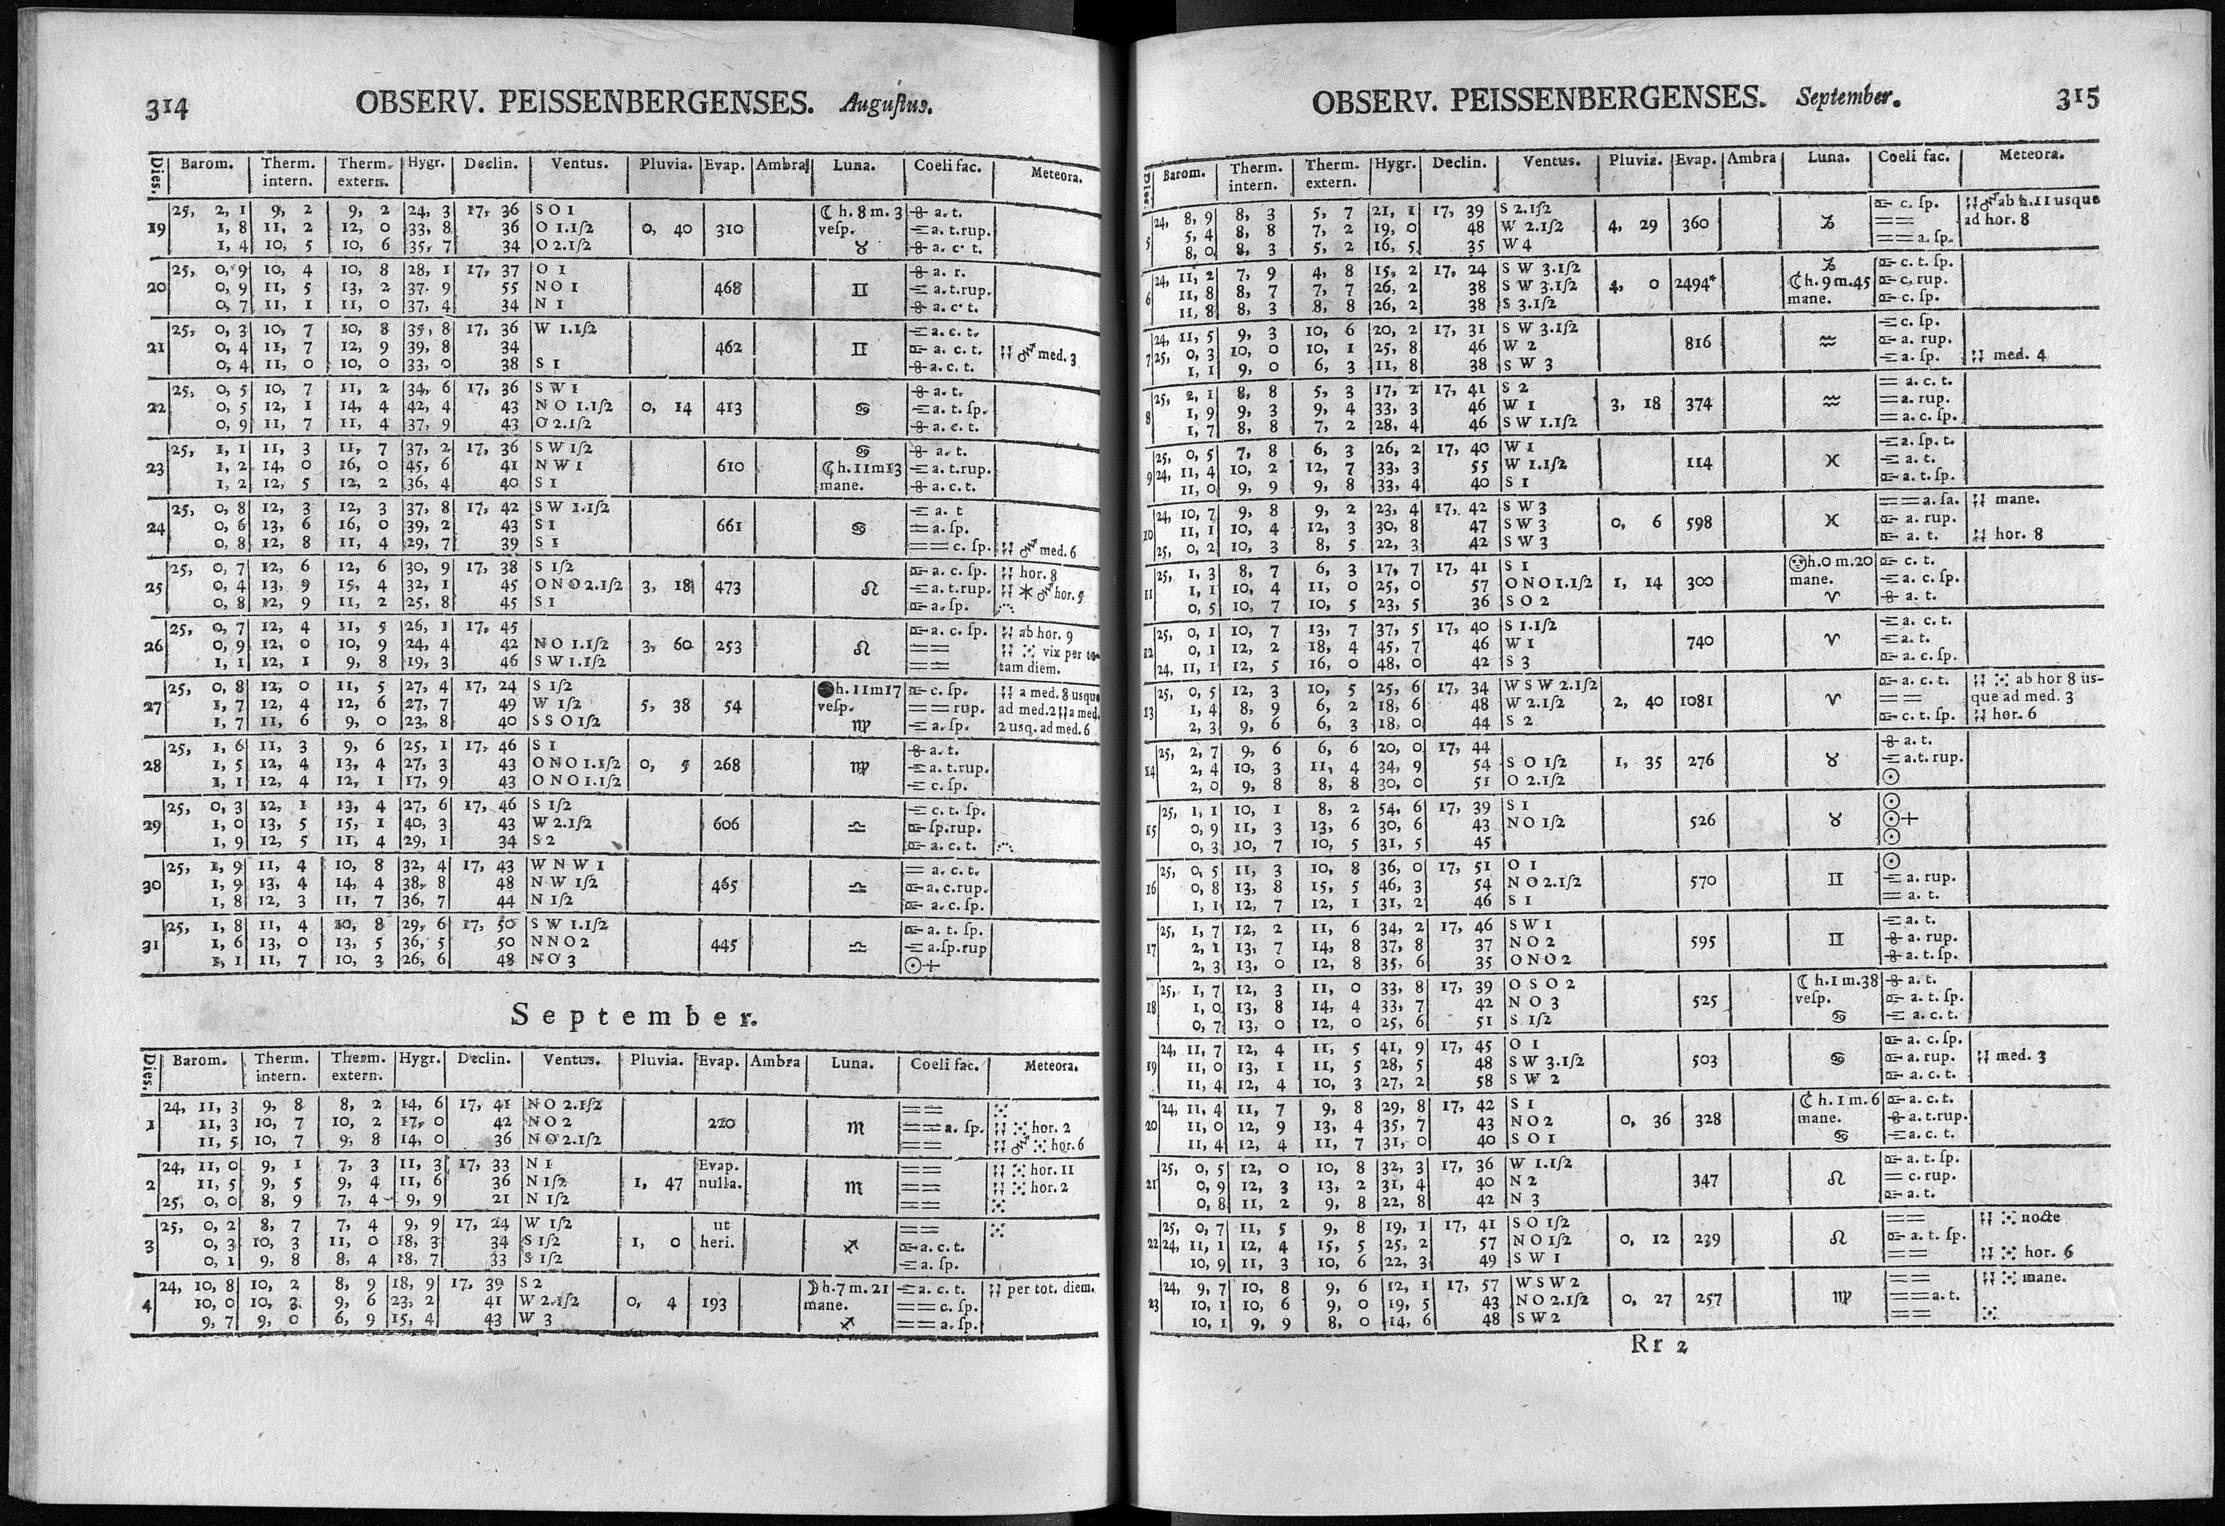 314 OBSERV. PEISSENBERGENSES. Auguſtus.
Dies. Barom. Therm. intern. Therm. extern. Hygr. Declin. Ventus. Pluvia. Evap. Ambra Luna. Coeli fac. Meteora.
19 25, 2, 1 9, 2 9, 2 24, 3 17, 36 S O 1 ☾ h. 8 m. 3 a. t.
1, 8 11, 2 12, 0 33, 8 36 O 1.1ſ2 0, 40 310 veſp. a. t. rup.
1, 4 10, 5 10, 6 35, 7 34 O 2.1ſ2 ♉ a. c. t.
20 25, 0, 9 10, 4 10, 8 28, 1 17, 37 O 1 a. r.
0, 9 11, 5 13, 2 37, 9 55 N O 1 468 ♊ a. t. rup.
0, 7 11, 1 11, 0 37, 4 34 N 1 a. c. t.
21 25, 0, 3 10, 7 10, 8 35, 8 17, 36 W 1.1ſ2 a. c. t.
0, 4 11, 7 12, 9 39, 8 34 462 ♊ a. c. t. med. 3
0, 4 11, 0 10, 0 33, 0 38 S 1 a. c. t.
22 25, 0, 5 10, 7 11, 2 34, 6 17, 36 S W 1 a. t.
0, 5 12, 1 14, 4 42, 4 43 N O 1.1ſ2 0, 14 413 ♋ a. t. ſp.
0, 9 11, 7 11, 4 37, 9 43 O 2.1ſ2 a. c. t.
23 25, 1, 1 11, 3 11, 7 37, 2 17, 36 S W 1ſ2 ♋ a. t.
1, 2 14, 0 16, 0 45, 6 41 N W 1 610 ☾ h. 11 m 13 a. t. rup.
1, 2 12, 5 12, 2 36, 4 40 S 1 mane. a. c. t.
24 25, 0, 8 12, 3 12, 3 37, 8 17, 42 S W 1.1ſ2 a. t
0, 6 13, 6 16, 0 39, 2 43 S 1 661 ♋ a. ſp.
0, 8 12, 8 11, 4 29, 7 39 S 1 c. ſp. med. 6
25 25, 0, 7 12, 6 12, 6 30, 9 17, 38 S 1ſ2 a. c. ſp. hor. 8
0, 4 13, 9 15, 4 32, 1 45 O N O 2.1ſ2 3, 18 473 ♌ a. t. rup. hor. 5
0, 8 12, 9 11, 2 25, 8 45 S 1 a. ſp.
26 25, 0, 7 12, 4 11, 5 26, 1 17, 45 a. c. ſp. ab hor. 9
0, 9 12, 0 10, 9 24, 4 42 N O 1.1ſ2 3, 60 253 ♌ == vix per to-
1, 1 12, 1 9, 8 19, 3 46 S W 1.1ſ2 == tam diem.
27 25, 0, 8 12, 0 11, 5 27, 4 17, 24 S 1ſ2 ● h. 11 m 17 c. ſp. a med. 8 usque
1, 7 12, 4 12, 6 27, 7 49 W 1ſ2 5, 38 54 veſp. == rup. ad med. 2 a med.
1, 7 11, 6 9, 0 23, 8 40 S S O 1ſ2 ♍ a. ſp. 2 usq. ad med. 6
28 25, 1, 6 11, 3 9, 6 25, 1 17, 46 S 1 a. t.
1, 5 12, 4 13, 4 27, 3 43 O N O 1.1ſ2 0, 5 268 ♍ a. t. rup.
1, 1 12, 4 12, 1 17, 9 43 O N O 1.1ſ2 c. ſp.
29 25, 0, 3 12, 1 13, 4 27, 6 17, 46 S 1ſ2 c. t. ſp.
1, 0 13, 5 15, 1 40, 3 43 W 2.1ſ2 606 ♎ ſp. rup.
1, 9 12, 5 11, 4 29, 1 34 S 2 a. c. t.
30 25, 1, 9 11, 4 10, 8 32, 4 17, 43 W N W 1 = a. c. t.
1, 9 13, 4 14, 4 38, 8 48 N W 1ſ2 465 ♎ a. c. rup.
1, 8 12, 3 11, 7 36, 7 44 N 1ſ2 a. c. ſp.
31 25, 1, 8 11, 4 10, 8 29, 6 17, 50 S W 1.1ſ2 a. t. ſp.
1, 6 13, 0 13, 5 36, 5 50 N N O 2 445 ♎ a. ſp. rup
1, 1 11, 7 10, 3 26, 6 48 N O 3 ☉+
September.
Dies. Barom. Therm. intern. Therm. extern. Hygr. Declin. Ventus. Pluvia. Evap. Ambra Luna. Coeli fac. Meteora.
1 24, 11, 3 9, 8 8, 2 14, 6 17, 41 N O 2.1ſ2 ==
11, 3 10, 7 10, 2 17, 0 42 N O 2 220 ♏ == a. ſp. hor. 2
11, 5 10, 7 9, 8 14, 0 36 N O 2.1ſ2 == hor. 6
2 24, 11, 0 9, 1 7, 3 11, 3 17, 33 N 1 Evap. == hor. 11
11, 5 9, 5 9, 4 11, 6 36 N 1ſ2 1, 47 nulla. ♏ == hor. 2
25, 0, 0 8, 9 7, 4 9, 9 21 N 1ſ2 ==
3 25, 0, 2 8, 7 7, 4 9, 9 17, 24 W 1ſ2 ut ==
0, 3 10, 3 11, 0 18, 3 34 S 1ſ2 1, 0 heri. ♐ a. c. t.
0, 1 9, 8 8, 4 18, 7 33 S 1ſ2 a. ſp.
4 24, 10, 8 10, 2 8, 9 18, 9 17, 39 S 2 ☽ h. 7 m. 21 a. c. t. per tot. diem.
10, 0 10, 3 9, 6 23, 2 41 W 2.1ſ2 0, 4 193 mane. == c. ſp.
9, 7 9, 0 6, 9 15, 4 43 W 3 ♐ == a. ſp.
OBSERV. PEISSENBERGENSES. September. 315
Dies. Barom. Therm. intern. Therm. extern. Hygr. Declin. Ventus. Pluvia. Evap. Ambra Luna. Coeli fac. Meteora.
5 24, 8, 9 8, 3 5, 7 21, 1 17, 39 S 2.1ſ2 c. ſp. ab h. 11 usque
5, 4 8, 8 7, 2 19, 0 48 W 2.1ſ2 4, 29 360 ♑ == ad hor. 8
8, 0 8, 3 5, 2 16, 5 35 W 4 == a. ſp.
6 24, 11, 2 7, 9 4, 8 15, 2 17, 24 S W 3.1ſ2 ♑ c. t. ſp.
11, 8 8, 7 7, 7 26, 2 38 S W 3.1ſ2 4, 0 2494* ☾ h. 9 m. 45 c. rup.
11, 8 8, 3 8, 8 26, 2 38 S 3.1ſ2 mane. c. ſp.
7 24, 11, 5 9, 3 10, 6 20, 2 17, 31 S W 3.1ſ2 c. ſp.
25, 0, 3 10, 0 10, 1 25, 8 46 W 2 816 ♒ a. rup.
1, 1 9, 0 6, 3 11, 8 38 S W 3 a. ſp. med. 4
8 25, 2, 1 8, 8 5, 3 17, 2 17, 41 S 2 = a. c. t.
1, 9 9, 3 9, 4 33, 3 46 W 1 3, 18 374 ♒ = a. rup.
1, 7 8, 8 7, 2 28, 4 46 S W 1.1ſ2 = a. c. ſp.
9 25, 0, 5 7, 8 6, 3 26, 2 17, 40 W 1 a. ſp. t.
24, 11, 4 10, 2 12, 7 33, 3 55 W 1.1ſ2 114 ♓ a. t.
11, 0 9, 9 9, 8 33, 4 40 S 1 a. t. ſp.
10 24, 10, 7 9, 8 9, 2 23, 4 17, 42 S W 3 == a. ſa. mane.
11, 1 10, 4 12, 3 30, 8 47 S W 3 0, 6 598 ♓ a. rup.
25, 0, 2 10, 3 8, 5 22, 3 42 S W 3 a. t. hor. 8
11 25, 1, 3 8, 7 6, 3 17, 7 17, 41 S 1 h. 0 m. 20 c. t.
1, 1 10, 4 11, 0 25, 0 57 O N O 1.1ſ2 1, 14 300 mane. a. c. ſp.
0, 5 10, 7 10, 5 23, 5 36 S O 2 ♈ a. t.
12 25, 0, 1 10, 7 13, 7 37, 5 17, 40 S 1.1ſ2 a. c. t.
0, 1 12, 2 18, 4 45, 7 46 W 1 740 ♈ a. t.
24, 11, 1 12, 5 16, 0 48, 0 42 S 3 a. c. ſp.
13 25, 0, 5 12, 3 10, 5 25, 6 17, 34 W S W 2.1ſ2 a. c. t. ab hor 8 us-
1, 4 8, 9 6, 2 18, 6 48 W 2.1ſ2 2, 40 1081 ♈ == que ad med. 3
2, 3 9, 6 6, 3 18, 0 44 S 2 c. t. ſp. hor. 6
14 25, 2, 7 9, 6 6, 6 20, 0 17, 44 a. t.
2, 4 10, 3 11, 4 34, 9 54 S O 1ſ2 1, 35 276 ♉ a. t. rup.
2, 0 9, 8 8, 8 30, 0 51 O 2.1ſ2 ☉
15 25, 1, 1 10, 1 8, 2 54, 6 17, 39 S 1 ☉
0, 9 11, 3 13, 6 30, 6 43 N O 1ſ2 526 ♉ ☉+
0, 3 10, 7 10, 5 31, 5 45 ☉
16 25, 0, 5 11, 3 10, 8 36, 0 17, 51 O 1 ☉
0, 8 13, 8 15, 5 46, 3 54 N O 2.1ſ2 570 ♊ a. rup.
1, 1 12, 7 12, 1 31, 2 46 S 1 = a. t.
17 25, 1, 7 12, 2 11, 6 34, 2 17, 46 S W 1 a. t.
2, 1 13, 7 14, 8 37, 8 37 N O 2 595 ♊ a. rup.
2, 3 13, 0 12, 8 35, 6 35 O N O 2 a. t. ſp.
18 25, 1, 7 12, 3 11, 0 33, 8 17, 39 O S O 2 ☾ h. 1 m. 38 a. t.
1, 0 13, 8 14, 4 33, 7 42 N O 3 525 veſp. a. t. ſp.
0, 7 13, 0 12, 0 25, 6 51 S 1ſ2 ♋ a. c. t.
19 24, 11, 7 12, 4 11, 5 41, 9 17, 45 O 1 a. c. ſp.
11, 0 13, 1 11, 5 28, 5 48 S W 3.1ſ2 503 ♋ a. rup. med. 3
11, 4 12, 4 10, 3 27, 2 58 S W 2 a. c. t.
20 24, 11, 4 11, 7 9, 8 29, 8 17, 42 S 1 ☾ h. 1 m. 6 a. c. t.
11, 0 12, 9 13, 4 35, 7 43 N O 2 0, 36 328 mane. a. t. rup.
11, 4 12, 4 11, 7 31, 0 40 S O 1 ♋ a. c. t.
21 25, 0, 5 12, 0 10, 8 32, 3 17, 36 W 1.1ſ2 a. t. ſp.
0, 9 12, 3 13, 2 31, 4 40 N 2 347 ♌ = c. rup.
0, 8 11, 2 9, 8 22, 8 42 N 3 a. t.
22 25, 0, 7 11, 5 9, 8 19, 1 17, 41 S O 1ſ2 == nocte
24, 11, 1 12, 4 15, 5 25, 2 57 N O 1ſ2 0, 12 239 ♌ a. t. ſp.
10, 9 11, 3 10, 6 22, 3 49 S W 1 == hor. 6
23 24, 9, 7 10, 8 9, 6 12, 1 17, 57 W S W 2 == mane.
10, 1 10, 6 9, 0 19, 5 43 N O 2.1ſ2 0, 27 257 ♍ == a. t.
10, 1 9, 9 8, 0 14, 6 48 S W 2 ==
Rr 2